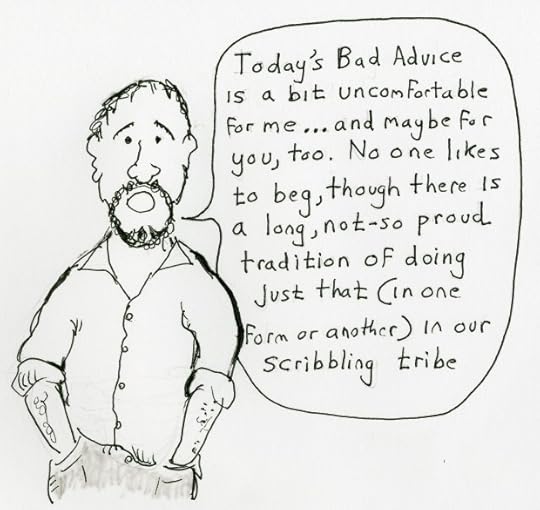 Today's Bad Advice
is a bit uncomfortable
for me...and maybe for
you, too. No one likes
to beg, though there is
a long, not-so proud
tradition of doing
just that (in one
form or another) in our
scribbling tribe